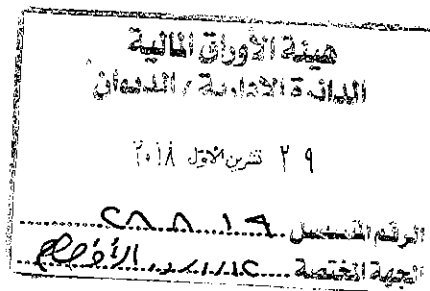 هيئة الأوراق المالية
الدائرة الادارية / الديوان
٢٩ تشرين الاول ٢٠١٨
الرقم المتسلسل ٢٨٨١٩
الجهة المختصة الافصاح